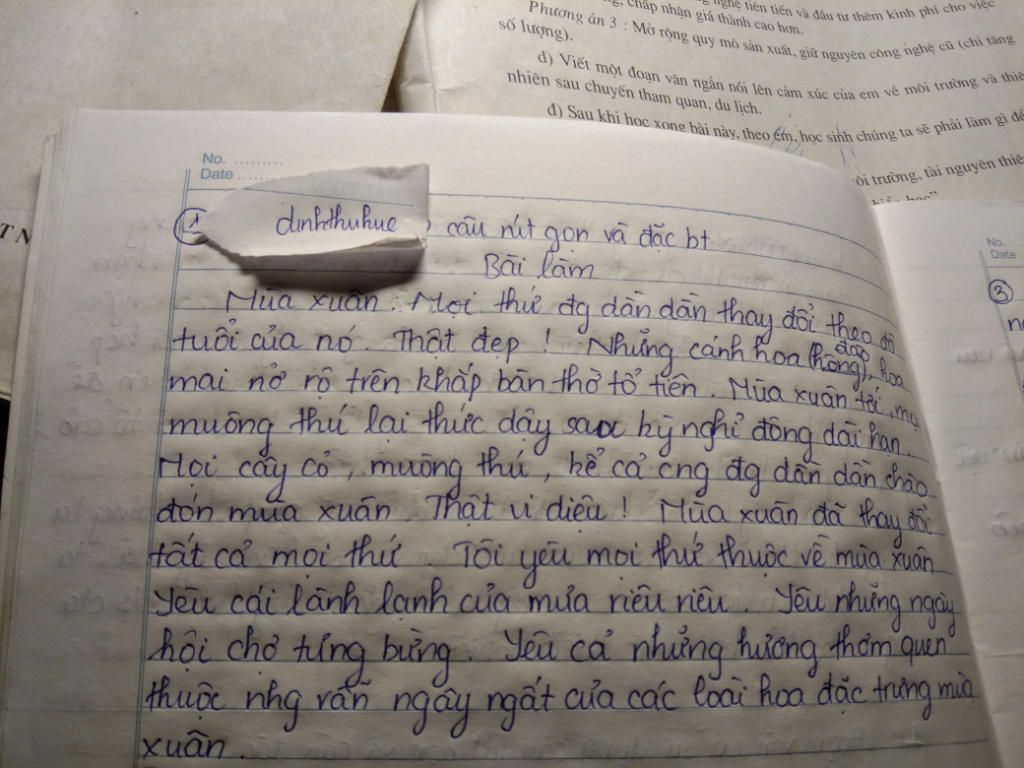 nghệ tiên tiến và đầu tư thêm kinh phí cho việc
chấp nhận giá thành cao hơn.
Phương án 3 : Mở rộng quy mô sản xuất, giữ nguyên công nghệ cũ (chỉ tăng
số lượng).
d) Viết một đoạn văn ngắn nói lên cảm xúc của em về môi trường và thiên
nhiên sau chuyến tham quan, du lịch.
đ) Sau khi học xong bài này, theo em, học sinh chúng ta sẽ phải làm gì để
ôi trường, tài nguyên thiê
No. ..........
Date .....
1 dinhthuhue câu rút gọn và đặc bt
Bài làm
Mùa xuân. Mọi thứ đg dần dần thay đổi theo độ
tuổi của nó. Thật đẹp ! Những cánh hoa (hồng) đào, hoa
mai nở rộ trên khắp bàn thờ tổ tiên. Mùa xuân tới, mọi
muông thú lại thức dậy sau kỳ nghỉ đông dài hạn.
Mọi cây cỏ, muông thú, kể cả cng đg dần dần chào
đón mùa xuân. Thật vi diệu ! Mùa xuân đã thay đổi
tất cả mọi thứ. Tôi yêu mọi thứ thuộc về mùa xuân
Yêu cái lành lạnh của mưa riêu riêu. Yêu những ngày
hội chợ tưng bừng. Yêu cả những hương thơm quen
thuộc nhg vẫn ngây ngất của các loài hoa đặc trưng mùa
xuân.
No.
Date
3